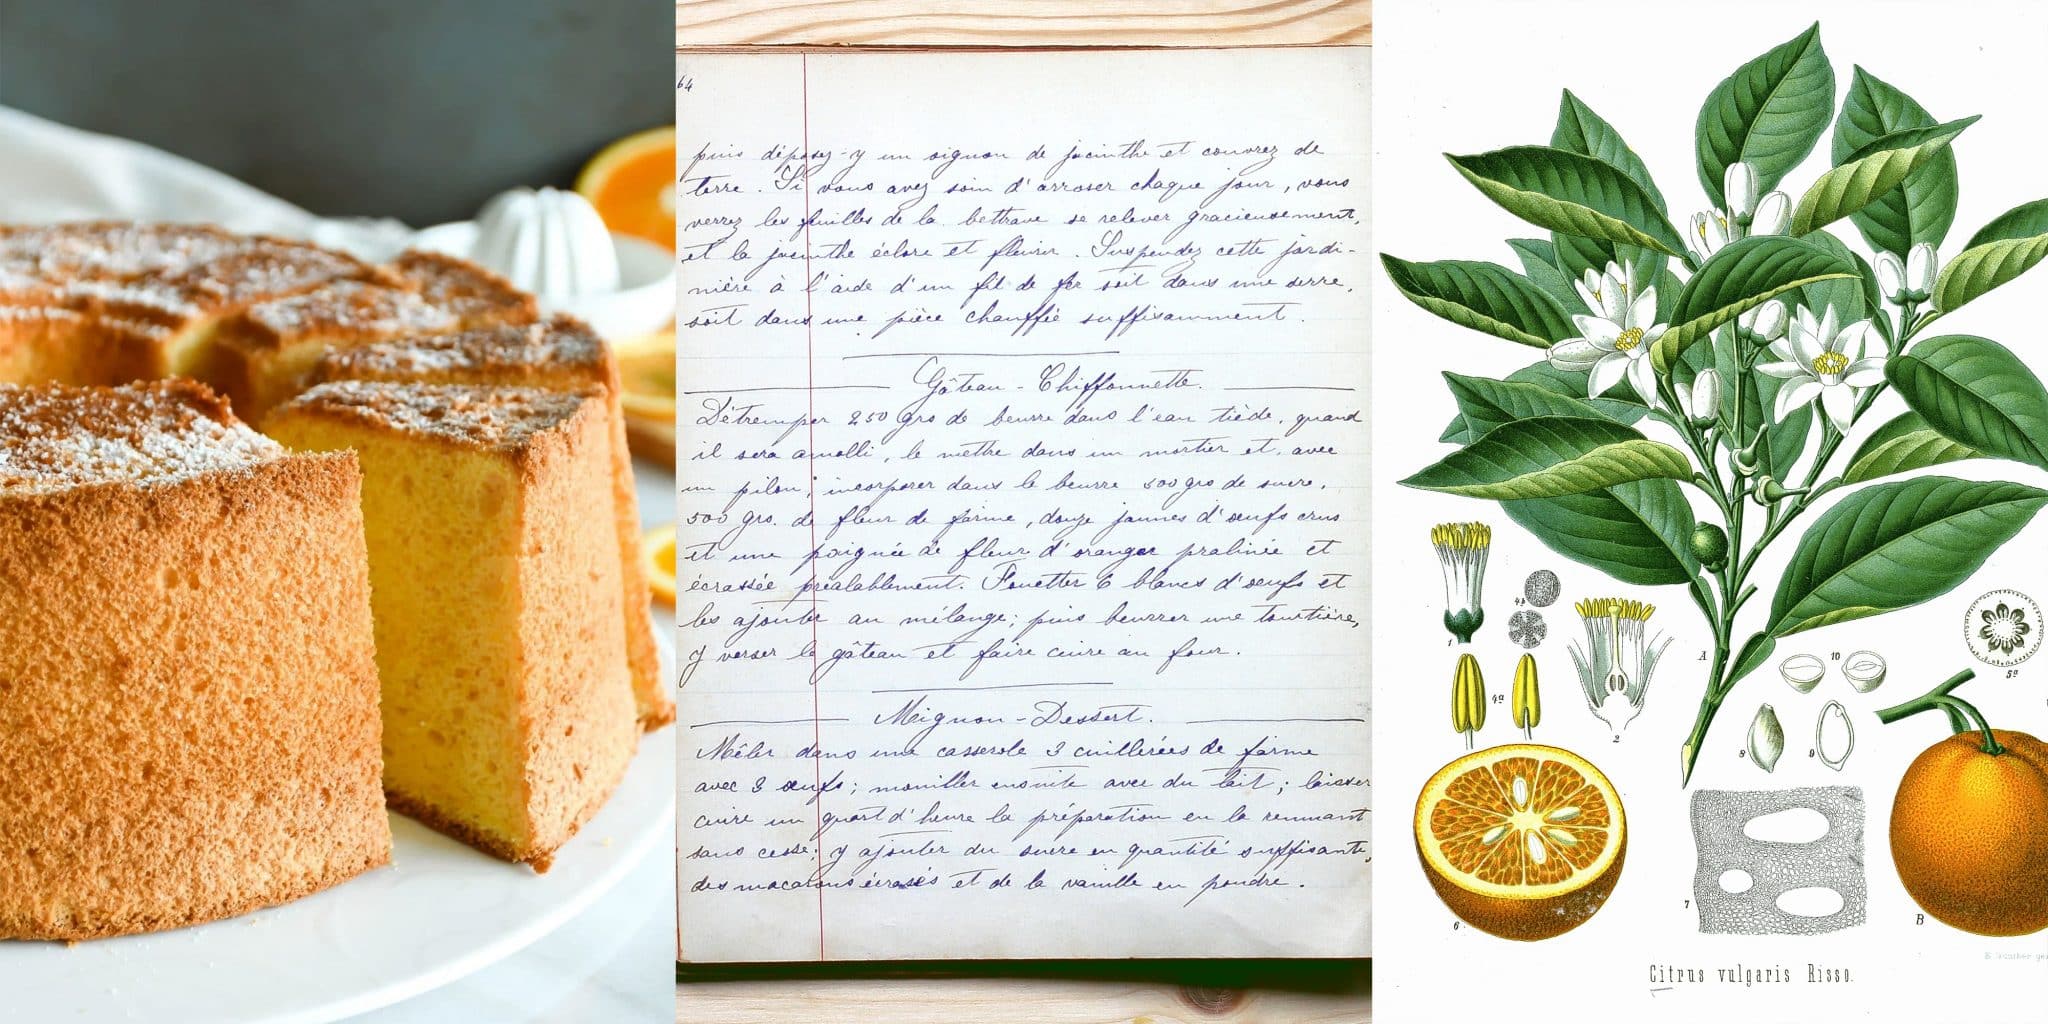 64
puis déposez-y un oignon de jacinthe et couvrez de
terre. Si vous avez soin d'arroser chaque jour, vous
verrez les feuilles de la bettrave se relever gracieusement,
et la jacinthe éclore et fleurir. Suspendez cette jardi-
nière à l'aide d'un fil de fer soit dans une serre,
soit dans une pièce chauffée suffisamment.
Gâteau-Chiffonnette.
Détremper 250 grs de beurre dans l'eau tiède, quand
il sera amolli, le mettre dans un mortier et, avec
un pilon, incorporer dans le beurre 500 grs de sucre,
500 grs. de fleur de farine, douze jaunes d'œufs crus
et une poignée de fleur d'oranger pralinée et
écrassée préalablement. Fouetter 6 blancs d'œufs et
les ajouter au mélange; puis beurrer une tourtière,
y verser le gâteau et faire cuire au four.
Mignon-Dessert.
Mêler dans une casserole 3 cuillerées de farine
avec 3 œufs; mouiller ensuite avec du lait; laisser
cuire un quart d'heure la préparation en la remuant
sans cesse; y ajouter du sucre en quantité suffisante,
des macarons écrasés et de la vanille en poudre.
A
1
4b
4a
2
10
5a
8
9
6
7
B
Citrus vulgaris Risso.